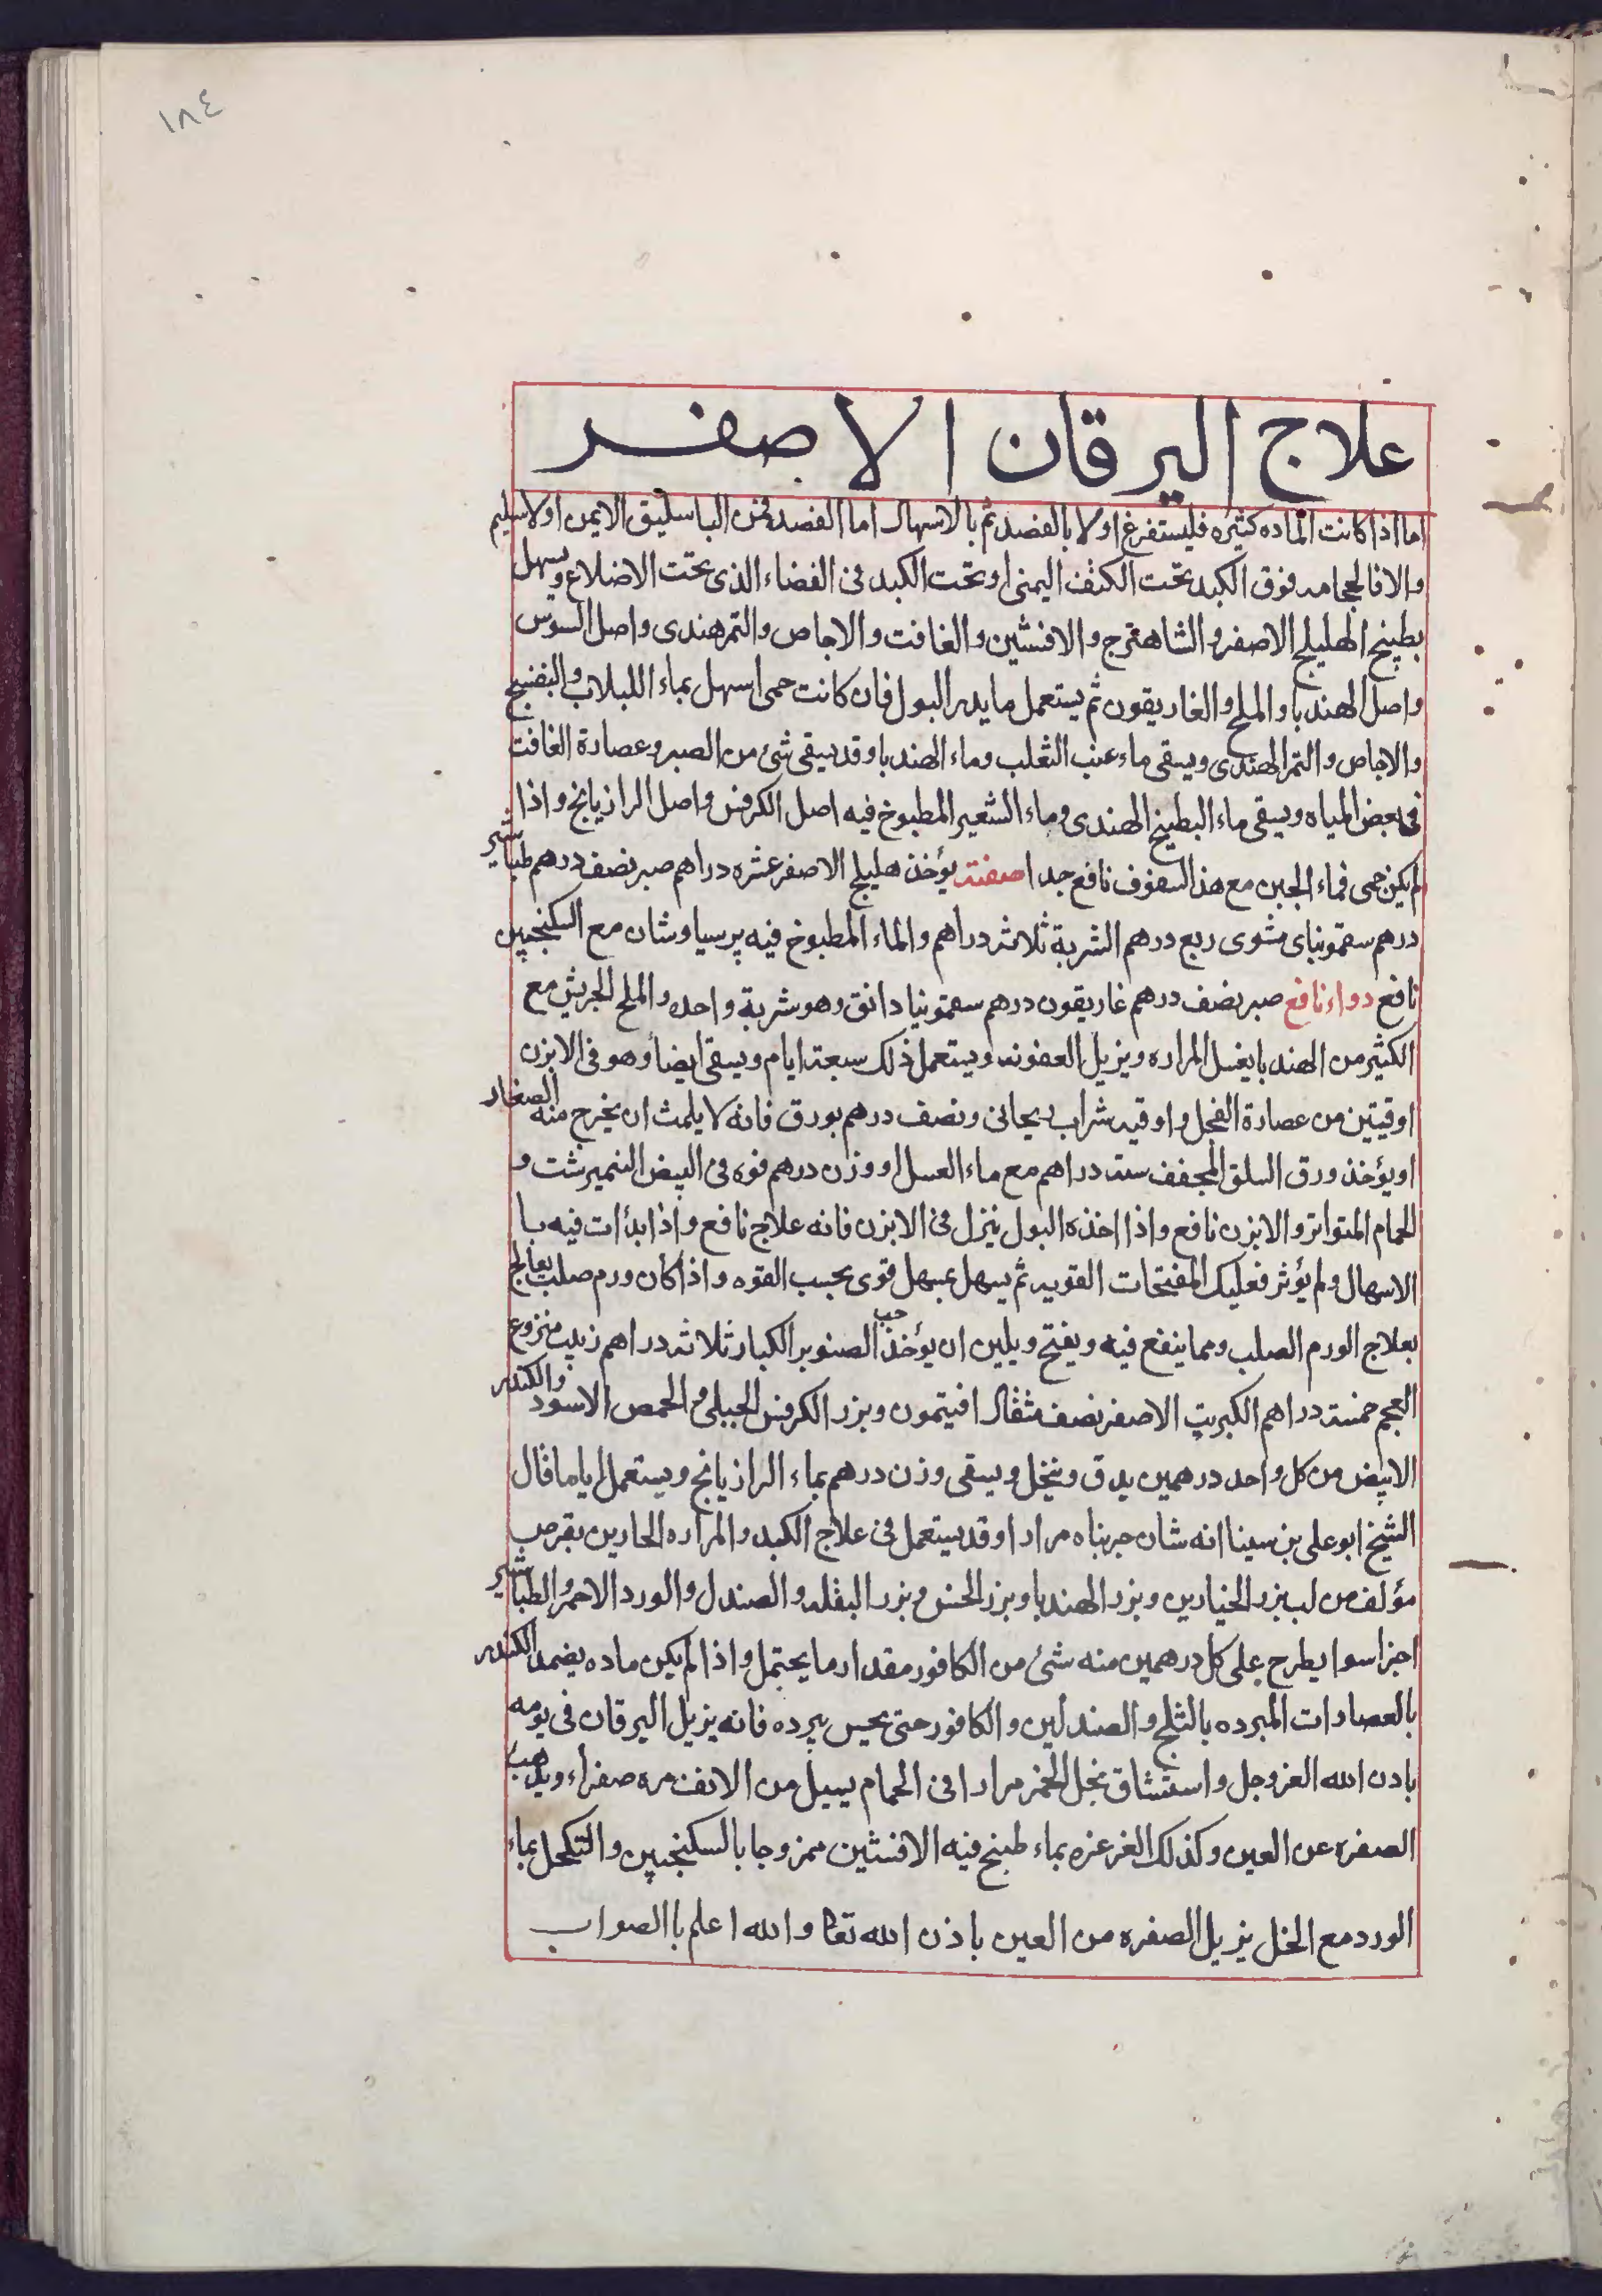 ١٨٤
علاج اليرقان الاصفر
اما اذا كانت الماده كثيره فليستفرغ اولا بالفصد ثم بالاسهال اما الفصد فمن الباسليق الايمن او لاسليم
والا فالحجامه فوق الكبد تحت الكتف اليمنى او تحت الكبد فى الفضاء الذى تحت الاضلاع ويسهل
بطبيخ الهليلج الاصفر والشاهترج والافنسثين والغافت والاجاص والتمر هندى واصل السوس
واصل الهندبا والملح والغاريقون ثم يستعمل ما يدر البول فان كانت حمى اسهل بماء اللبلاب والبنفسج
والاجاص والتمر الهندى ويسقى ماء عنب الثعلب وماء الهندبا وقد يسقى شئ من الصبر وعصارة الغافت
فى بعض المياه ويسقى ماء البطيخ الهندى وماء الشعير المطبوخ فيه اصل الكرفس واصل الرازيانج واذا
لم يكن حمى فماء الجبن مع هذا السفوف نافع جدا صفته يؤخذ هليلج الاصفر عشره دراهم صبر نصف درهم طباشير
درهم سقمونياى مشوى ربع درهم الشربة ثلاثه دراهم والماء المطبوخ فيه پرسياوشان مع السكنجبين
نافع دواء نافع صبر نصف درهم غاريقون درهم سقمونيا دانق وهو شربة واحده والملح الجريش مع
الكثير من الهندبا يغسل المراره ويزيل العفونه ويستعمل ذلك سبعة ايام ويسقى ايضاً وهو فى الابزن
اوقيتين من عصارة الفجل واوقيه شراب ريحانى ونصف درهم بورق فانه لا يلمث ان يخرج منه الصغار
او يؤخذ ورق السلق المجفف ستة دراهم مع ماء العسل او وزن درهم فوه فى البيض النميرشت و
الحمام المتواتر والابزن نافع واذا اخذه البول ينزل فى الابزن فانه علاج نافع واذا بدأت فيه با
الاسهال ولم يؤثر فعليك المفتحات القويه ثم يسهل بمسهل قوى بحسب القوه واذا كان ورم صلب يعالج
بعلاج الورم الصلب ومما ينفع فيه ويفتح ويلين ان يؤخذ حب الصنوبر الكبار ثلاثة دراهم زبيب منزوع
العجم خمسة دراهم الكبريت الاصفر نصف مثقال افيتمون وبزر الكرفس الجبلى والحمص الاسود والكندر
الابيض من كل واحد درهمين يدق وينخل ويسقى وزن درهم بماء الرازيانج ويستعمل اياما قال
الشيخ ابو على بن سينا انه شان جربناه مرارا وقد يستعمل فى علاج الكبد والمراره الحارين بقرص
مؤلف من لب بزر الخيارين وبزر الهندبا وبزر الخس وبزر البقله والصندل والورد الاحمر والطباشير
اجزا سوا يطرح على كل درهمين منه شئ من الكافور مقدار ما يحتمل واذا لم يكن ماده يضمد الكندر
بالعصاوات المبرده بالثلج والصندلين والكافور حتى يحس ببرده فانه يزيل اليرقان فى يومه
بادن الله العزوجل واستنشاق بخل الخمر مرارا فى الحمام يسيل من الانف مره صفراء ويذهب
الصفره عن العين وكذلك الغرغره بماء طبخ فيه الافسنثين ممزوجا بالسكنجبين والتكحل بماء
الورد مع الخل يزيل الصفره من العين باذن الله تعا والله اعلم باالصواب